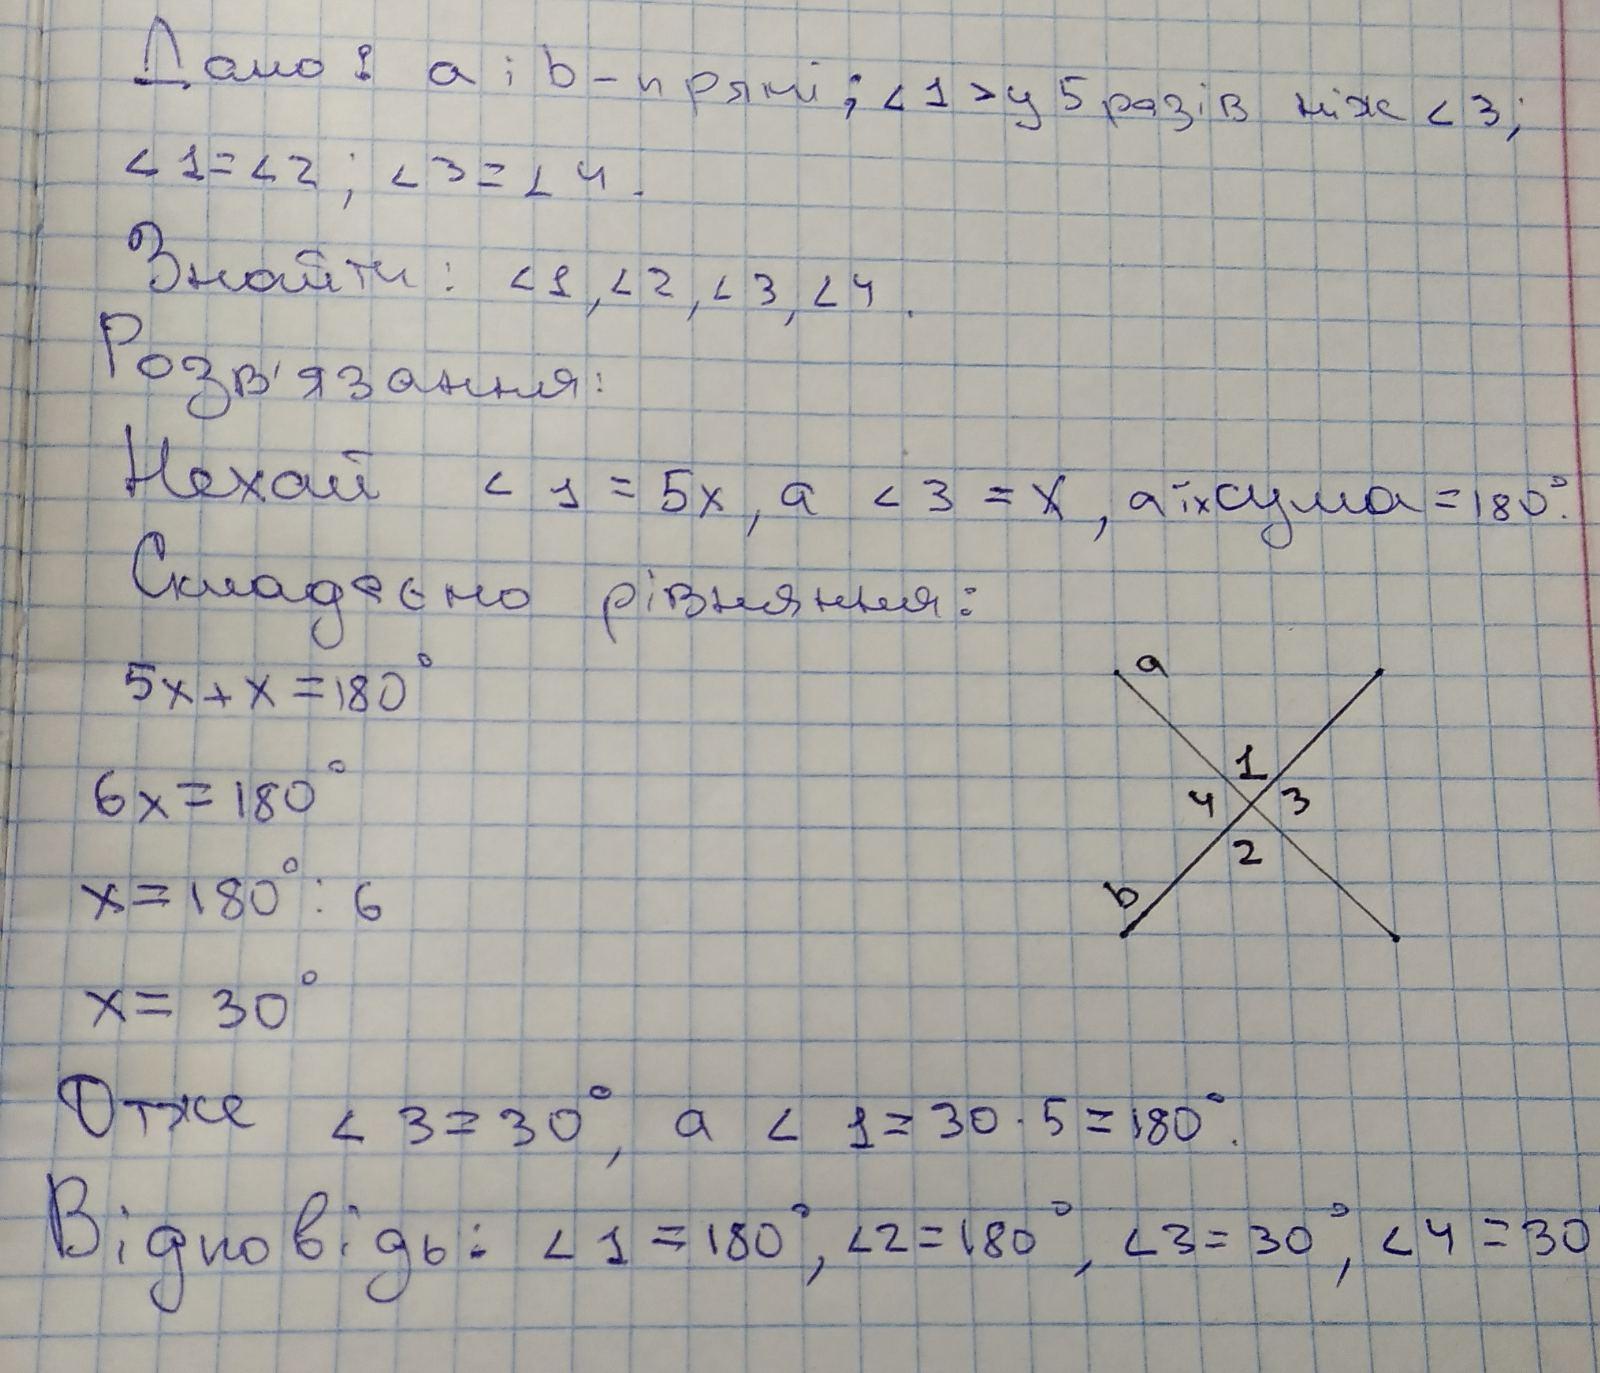 Дано: a і b - прямі; <1 > у 5 разів ніж <3;
<1=<2; <3=<4.
Знайти: <1, <2, <3, <4.
Розв'язання:
Нехай <1=5x, а <3=x, а їх сума=180°.
Складаємо рівняння:
5x+x=180°
6x=180°
x=180°:6
x=30°
a
1
4 3
2
b
Отже <3=30°, а <1=30·5=180°.
Відповідь: <1=180°, <2=180°, <3=30°, <4=30°